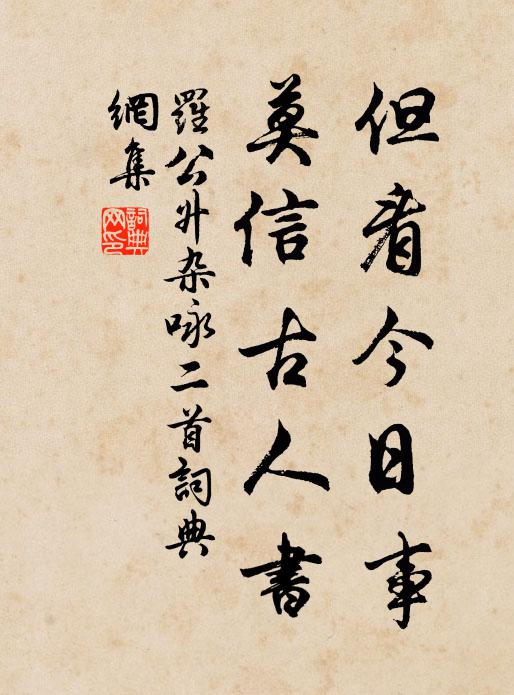 但看今日事
莫信古人書
羅公升杂咏二首詞典
網集
詞典
网印